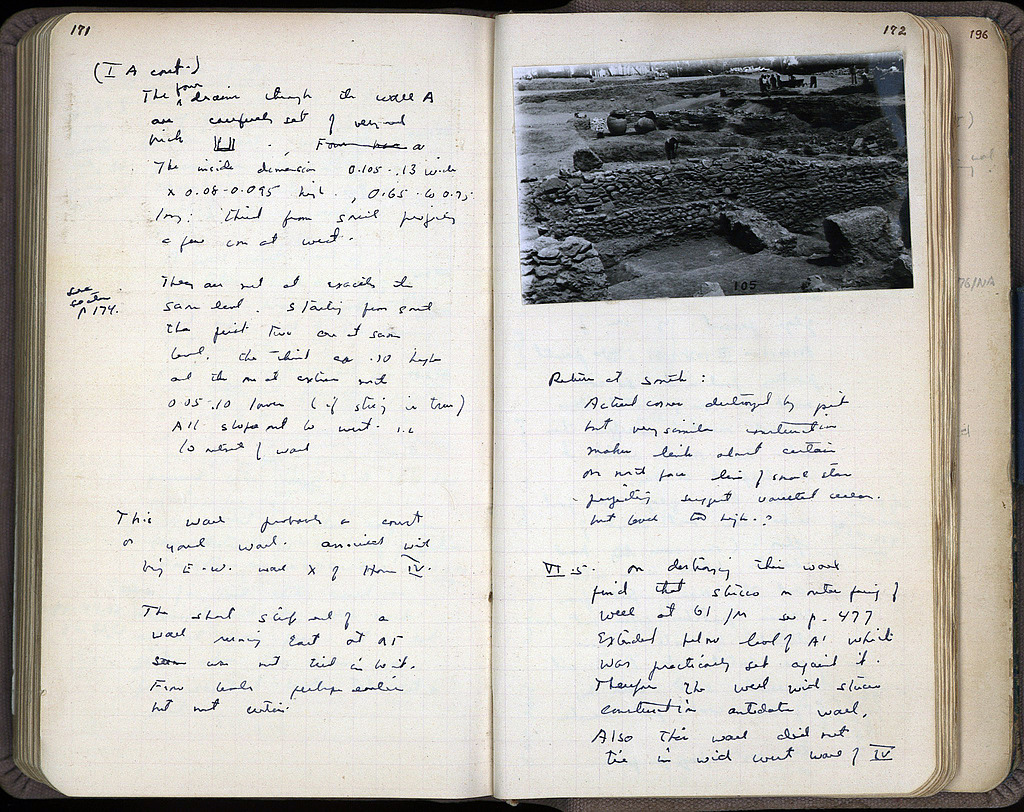 171
(I A cont.)
The four drains through the wall A
are carefully set of very red
brick
The inside dimension 0.105-.13 wide
x 0.08-0.095 high, 0.65 to 0.75
long: third from south projecting
a few cm at west.
see
section
p 174.
They are not at exactly the
same level. Starting from south
the first two are at same
level, the third .10 higher
and the one at extreme north
0.05-.10 lower (if string is true)
All slope to west. i.e.
to outside of wall
This wall probably a court
or yard wall. associated with
big E-W. wall X of House IV.
The short strip of a
wall running East at A5
was not tied in to it.
From levels perhaps earlier
but not certain.
172
105
Return at south:
Actual corner destroyed by pit
but very similar construction
makes link almost certain
on north face line of small stones
projecting suggest
but level too high.?
VI.5. On destroying this wall
find that stucco on outer facing of
well at 61/M see p. 477
Extended below level of A1 which
was practically set against it.
Therefore the well with stucco
construction antedates wall.
Also this wall did not
tie in with west wall of IV
196
76/NA